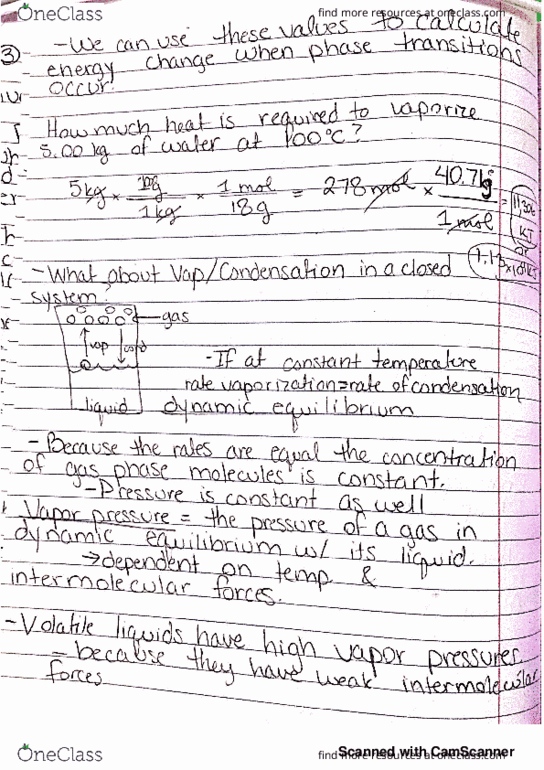 OneClass
find more resources at oneclass.com
- We can use these values to calculate
③ energy change when phase transitions
occur.
How much heat is required to vaporize
5.00 kg of water at 100°C?
5kg × g/1kg × 1 mol/18g = 278 mol × 40.7/1 mol =
KJ
or
- What about Vap/Condensation in a closed
system?
gas
vap cond
- If at constant temperature
rate vaporization = rate of condensation
liquid dynamic equilibrium
- Because the rates are equal the concentration
of gas phase molecules is constant.
- Pressure is constant as well
Vapor pressure = the pressure of a gas in
dynamic equilibrium w/ its liquid.
→ dependent on temp &
intermolecular forces.
- Volatile liquids have high vapor pressures.
= because they have weak intermolecular
forces
OneClass
find more resources at oneclass.com
Scanned with CamScanner